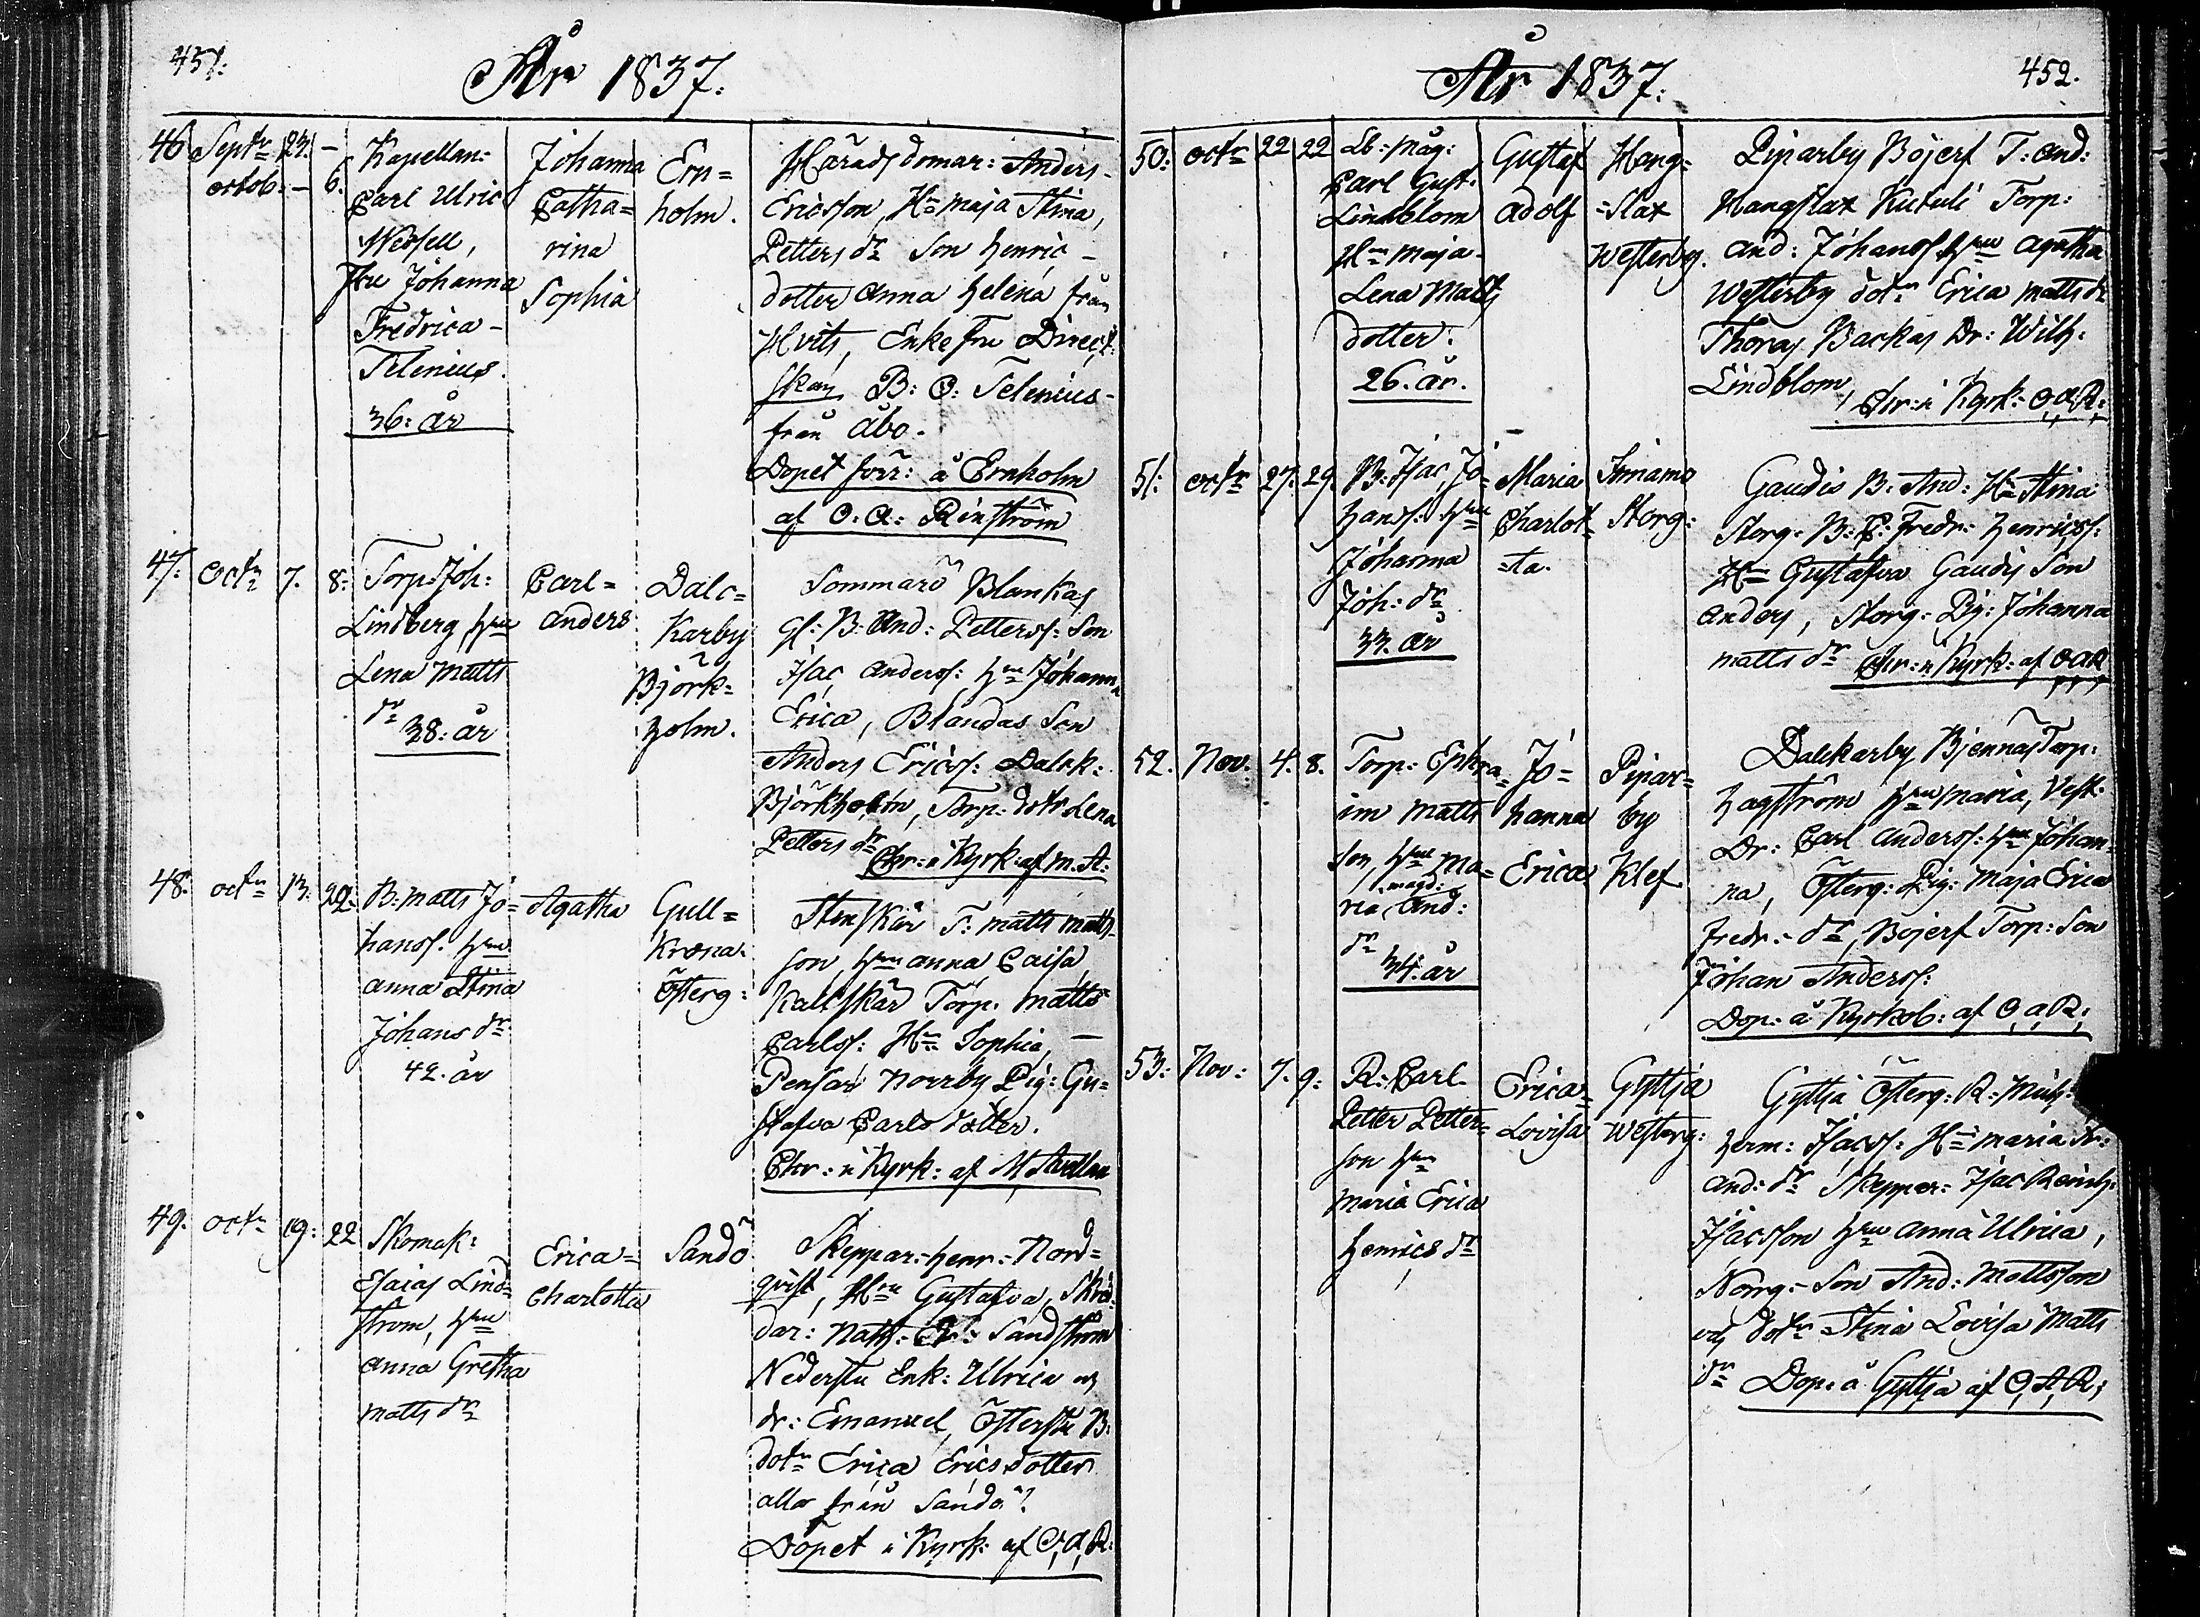 451.
År 1837.
46 Septr 23. —
octob: — 6.
Kapellan:
Carl Ulric
Wessell,
Fru Johanna
Fredrica
Telenius.
36: år
Johanna
Catha=
rina
Sophia
Ern=
holm.
Häradsdomar: Anders
Ericsson, Hn Maja Stina,
Petters dr Son Henric
dotter Anna Helena från
Hvits, Enke Fru Direct:
skan B: O: Telenius
från Åbo.
Döpet förr: å Ernholm
af O. A: Renström
47: Octr 7. 8:
Torp: Joh:
Lindberg hru
Lena Matts
dr 38: år
Carl=
Anders
Dals=
Karby
Björk=
holm.
Sommarö Blankas
Gl: B: And: Petterss: Son
Isac Anderss: hru Johanna
Erica, Blandas Son
Anders Ericss: Dalsk:
Björkholm, Torp: dotr Lena
Petters dr Chr: i Kyrk: af M. A:
48. octr 13. 22.
B: Matts Jo=
hanss. hru
Anna Stina
Johans dr
42. år
Agatha
Gull=
krona
Österg:
Stenskär T: Matts Matts
son, hru Anna Caisa,
Kalfskär Torp. Matts
Carlss: Hn Sophia, —
Pensar Norrby Pig: Gu=
stafva Carls dotter.
Chr: i Kyrk: af M Avellan
49. octr 19: 22
Skomak:
Esaias Lind=
ström, hru
Anna Gretha
Matts dr
Erica=
Charlotta
Sandö
Skeppar: Henr: Nord=
qvist, Hru Gustafva, Skräd
dar: Nath: Sandström
Nedersta Enk: Ulrica och
dr: Emanuel, Östersta B:
dotr Erica Ericsdotter
alla från Sandö.
Döpet i Kyrk: af O, A, R:
År 1837.
452.
50: octr 22 22
Lb: Måg:
Carl Gust.
Lindblom
Hru Maja
Lena Matts
dotter.
26. år.
Gustaf
Adolf
Hang=
=slax
Westerby.
Piparby Böjerf T: And:
Hangslax Kutuli Torp:
And: Johanss hru Agatha
Westerby dotr Erica Matts dr
Thoras Backas Dr: Wilh:
Lindblom, Chr: i Kyrk: O, A, R:
51: octr 27. 29.
B: Isac, Jo
hanss: hru
Johanna
Joh: dr
33. år
Maria
Charlot=
=ta.
Innamo
Storg:
Gaudis B: And: Hn Stina
Storg. B: C: Fredr: Henricss:
Hn Gustafva Gaudis Son
Anders, Storg: Pig: Johanna
Matts dr Chr: i Kyrk: af O A R
52. Nov: 4. 8.
Torp: Ephra=
im Matts
son, hru Ma=
magd:
ria, And:
dr 34. år
Jo=
hanna
Erica
Pipar=
by
Klef
Dalskarby Bjennas Torp:
Hagström hru Maria, Vest:
Dr: Carl Anderss: hru Johan=
na, Österg: Pig: Maja Erica
Fredr: dr, Böjerf Torp: Son
Johan Anderss:
Dop: å Kyrkob: af O, A, R;
53: Nov: 7. 9:
R: Carl
Petter Petter=
son hru
Maria Erica
Henrics dr
Erica=
Lovisa
Gyttja
Westerg:
Gyttja Österg: R: Mich:
Herm: Isacs: Hn Maria
And: dr Skeppar: Isac Reinh:
Isacsson hru Anna Ulrica,
Norrg: Son And: Mattsson
och dotr Stina Lovisa Matts
dr Dop: å Gyttja af O, A, R;